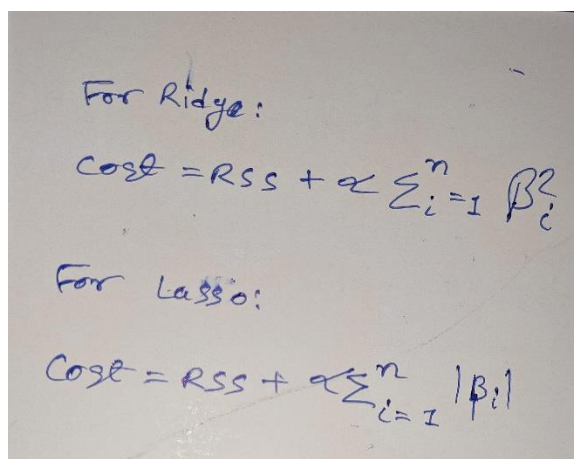 For Ridge:
Cost = RSS + α Σⁿᵢ₌₁ βᵢ²
For Lasso:
Cost = RSS + α Σⁿᵢ₌₁ |βᵢ|